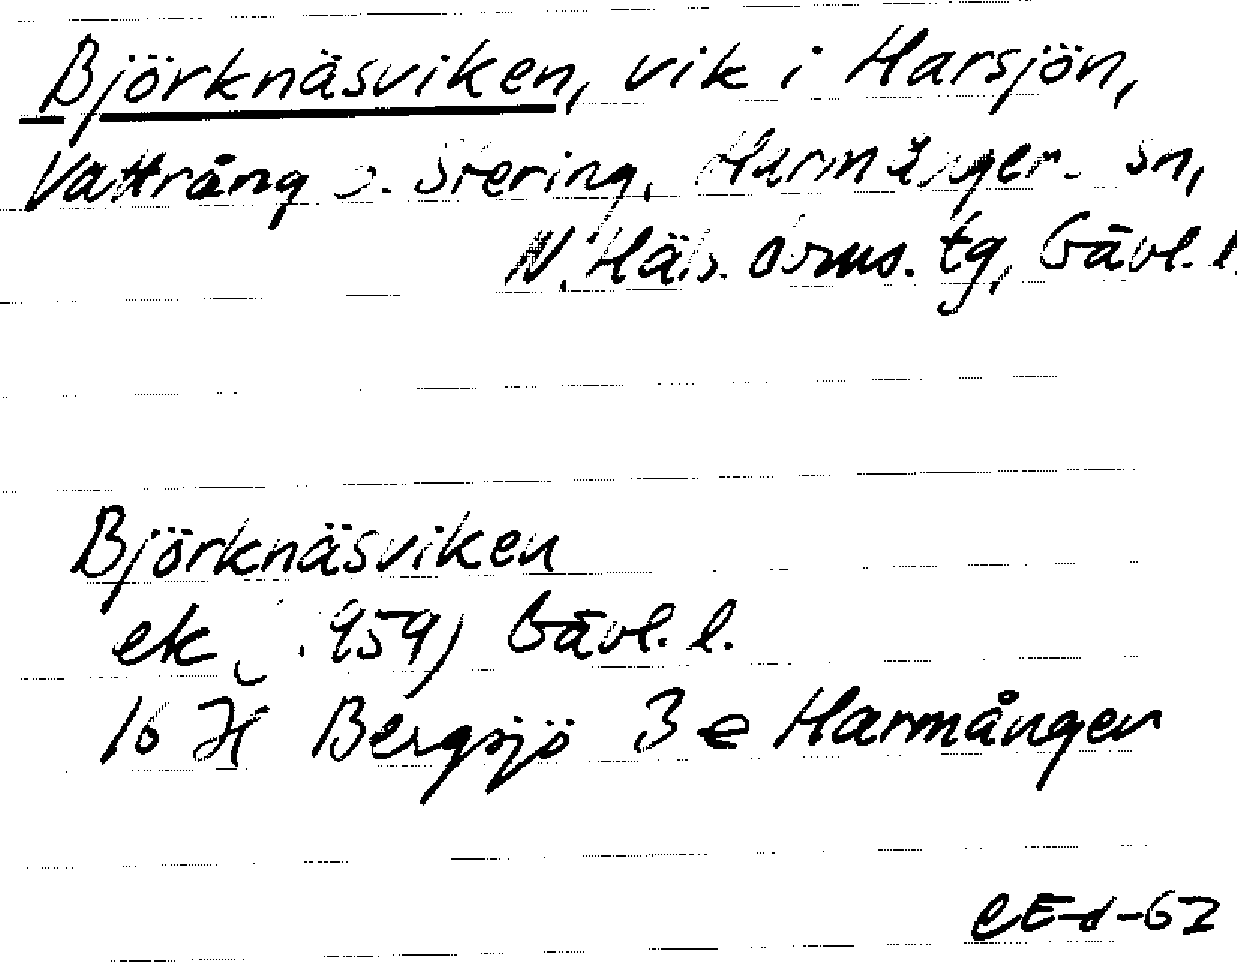 Björknäsviken, vik i Harsjön,
Vattrång o. Stering, Harmånger sn,
N. Häls. tg, Gävl. l.
Björknäsviken
ek (1959) Gävl. l.
16 H Bergsjö 3 e Harmånger
CE-d-62